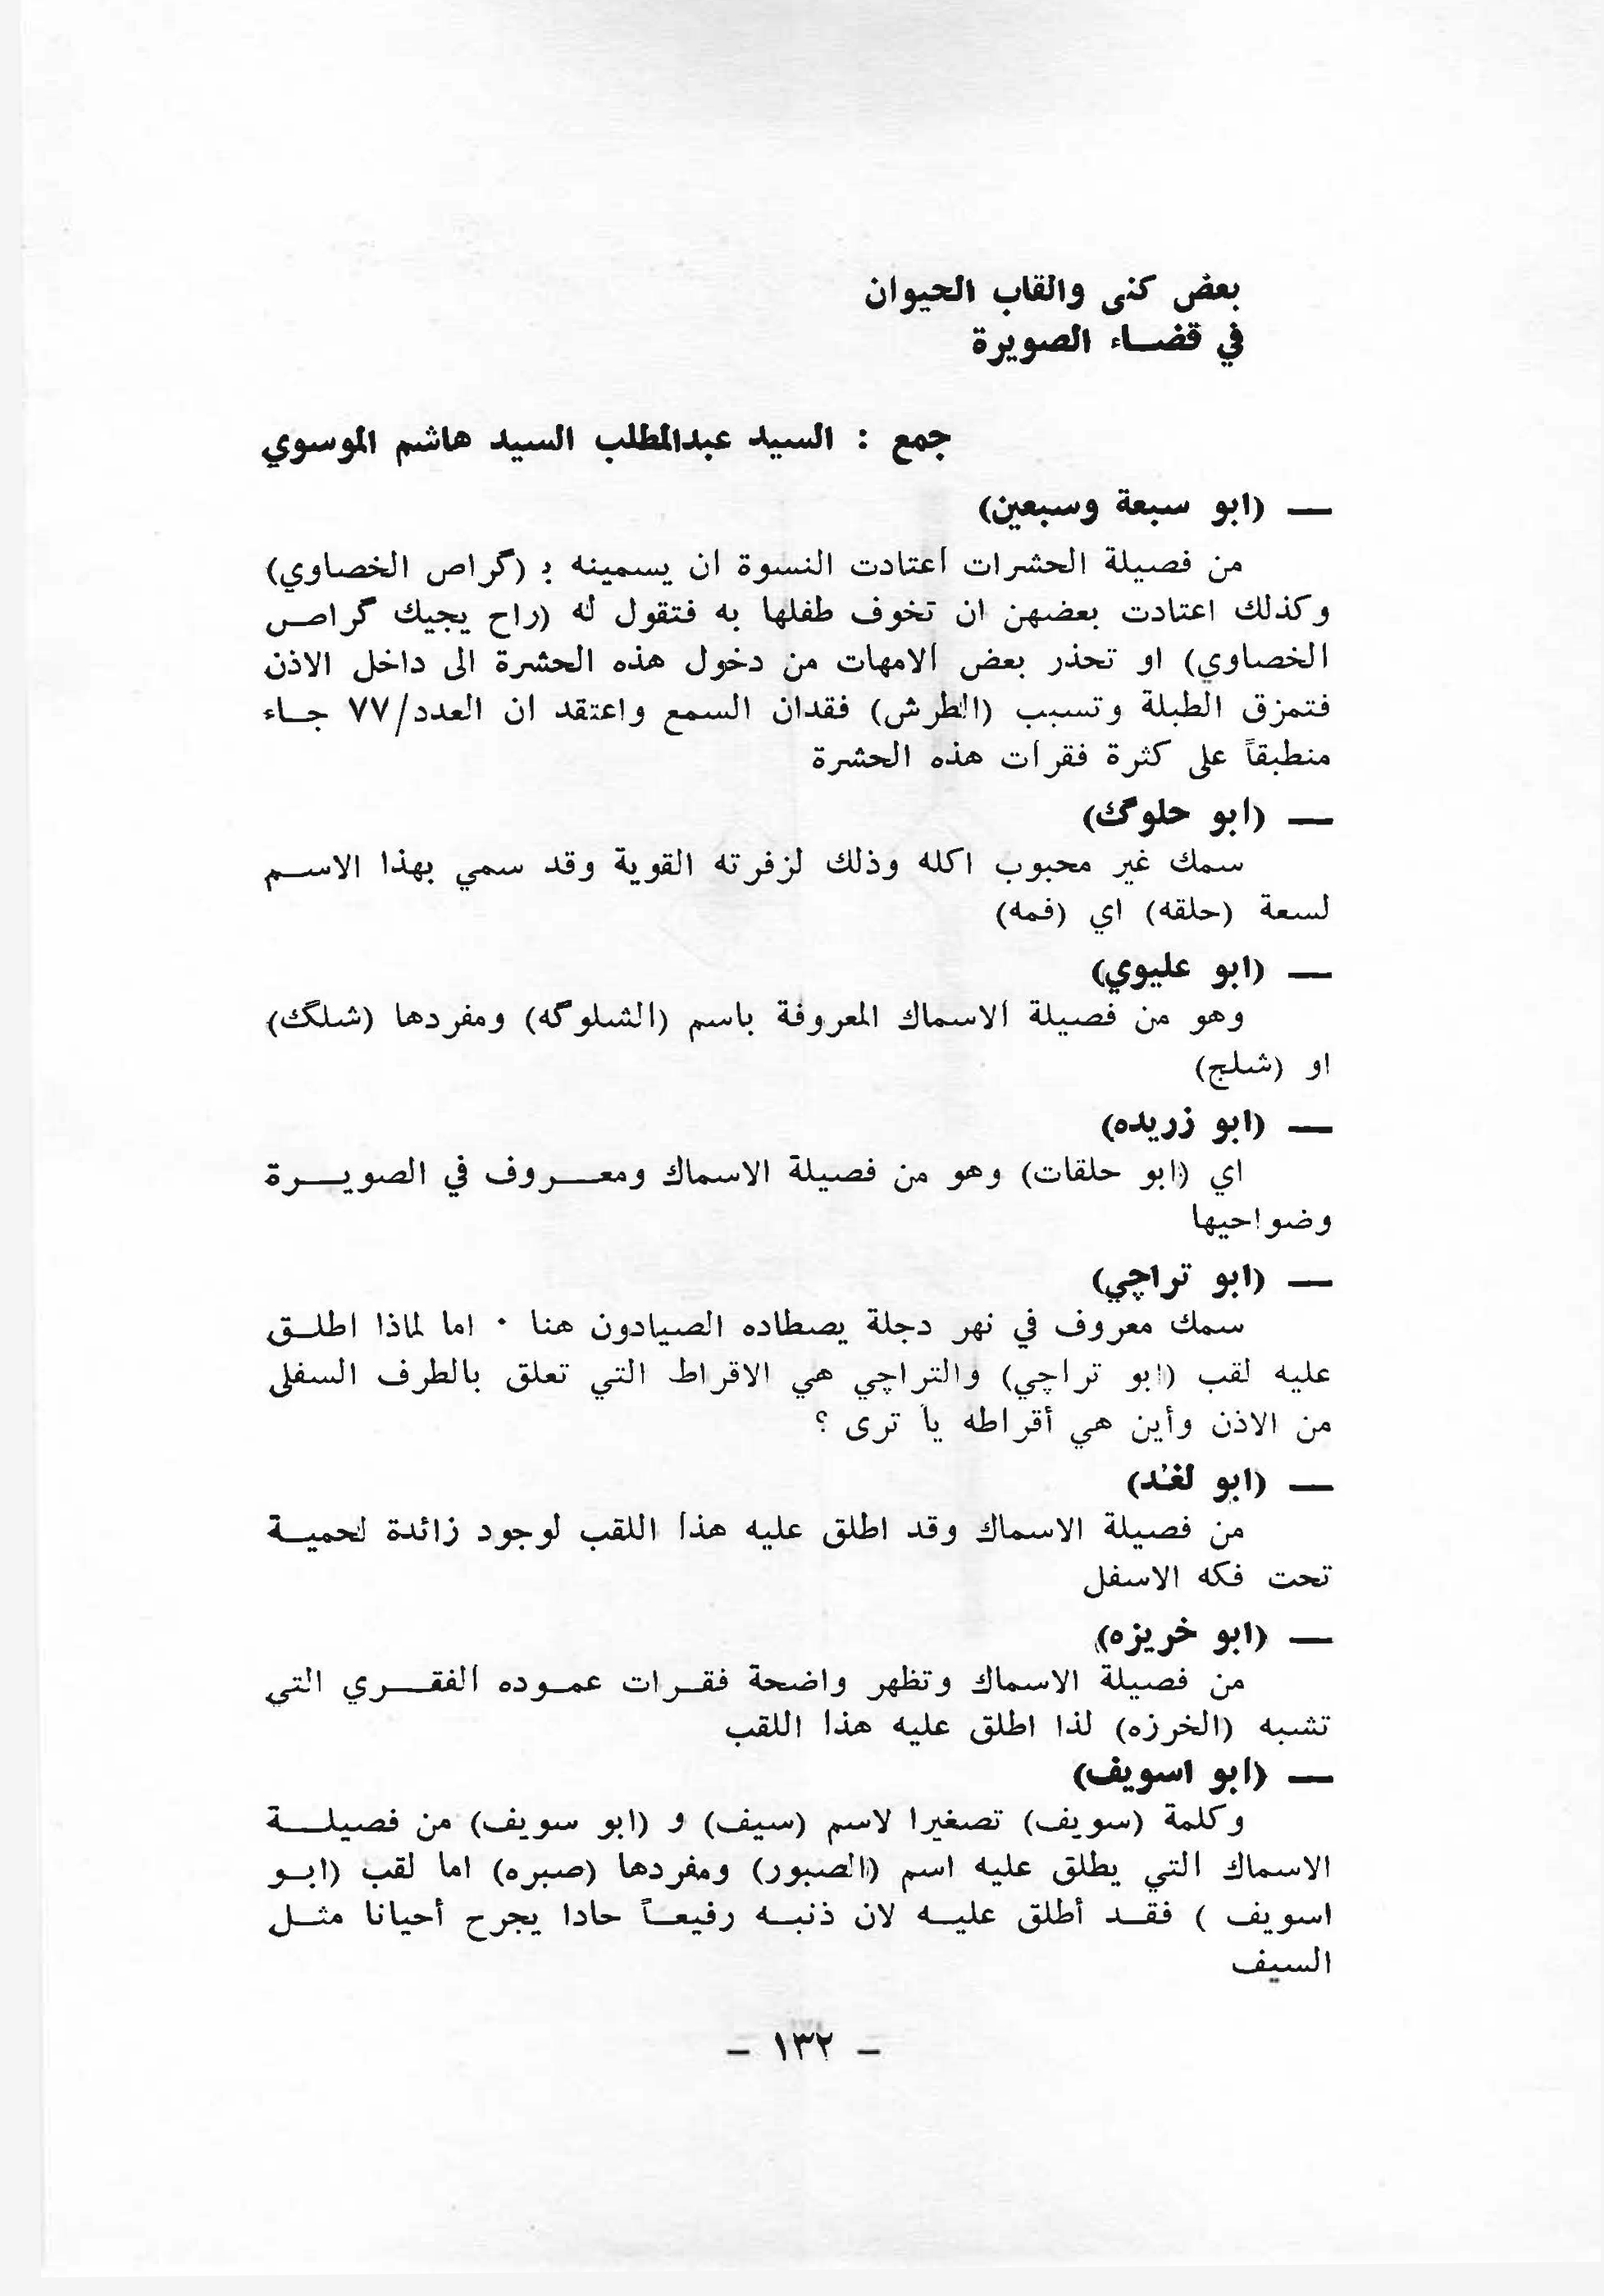 بعض كنى والقاب الحيوان
في قضاء الصويرة
جمع : السيد عبدالمطلب السيد هاشم الموسوي
— (ابو سبعة وسبعين)
من فصيلة الحشرات اعتادت النسوة ان يسمينه بـ (گراص الخصاوي)
وكذلك اعتادت بعضهن ان تخوف طفلها به فتقول له (راح يجيك گراص
الخصاوي) او تحذر بعض الامهات من دخول هذه الحشرة الى داخل الاذن
فتمزق الطبلة وتسبب (الطرش) فقدان السمع واعتقد ان العدد/٧٧ جاء
منطبقاً على كثرة فقرات هذه الحشرة
— (ابو حلوگ)
سمك غير محبوب اكله وذلك لزفرته القوية وقد سمي بهذا الاسم
لسعة (حلقه) اي (فمه)
— (ابو عليوي)
وهو من فصيلة الاسماك المعروفة باسم (الشلوگه) ومفردها (شلگ)
او (شلج)
— (ابو زريده)
اي (ابو حلقات) وهو من فصيلة الاسماك ومعروف في الصويرة
وضواحيها
— (ابو تراچي)
سمك معروف في نهر دجلة يصطاده الصيادون هنا ٠ اما لماذا اطلق
عليه لقب (ابو تراچي) والتراچي هي الاقراط التي تعلق بالطرف السفلى
من الاذن وأين هي أقراطه يا ترى ؟
— (ابو لغد)
من فصيلة الاسماك وقد اطلق عليه هذا اللقب لوجود زائدة لحمية
تحت فكه الاسفل
— (ابو خريزه)
من فصيلة الاسماك وتظهر واضحة فقرات عموده الفقري التي
تشبه (الخرزه) لذا اطلق عليه هذا اللقب
— (ابو اسويف)
وكلمة (سويف) تصغيرا لاسم (سيف) و (ابو سويف) من فصيلة
الاسماك التي يطلق عليه اسم (الصبور) ومفردها (صبره) اما لقب (ابو
اسويف ) فقد أطلق عليه لان ذنبه رفيعاً حادا يجرح أحيانا مثل
السيف
– ١٣٢ –